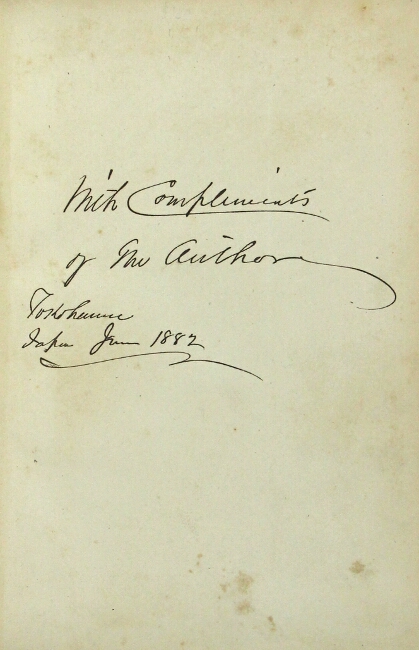 With Compliments
of The Author
Yokohama
Japan June 1882